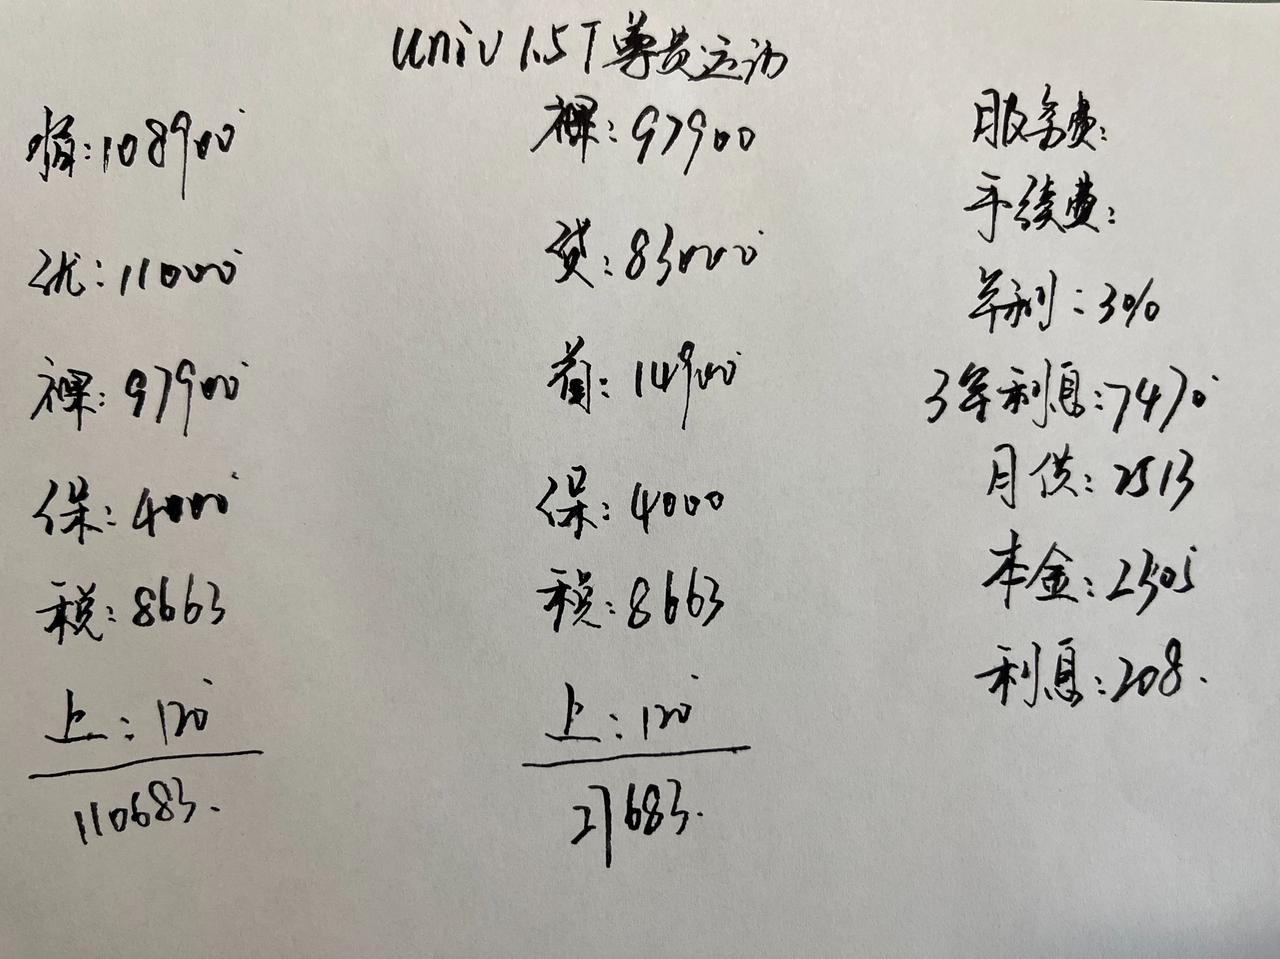 univ 1.5T 尊贵运动
指:108900
优:11000
裸:97900
保:4000
税:8663
上:120
110683.
裸:97900
贷:83000
首:14900
保:4000
税:8663
上:120
27683.
服务费:
手续费:
年利:3%
3年利息:7470
月供:2513
本金:2305
利息:208.